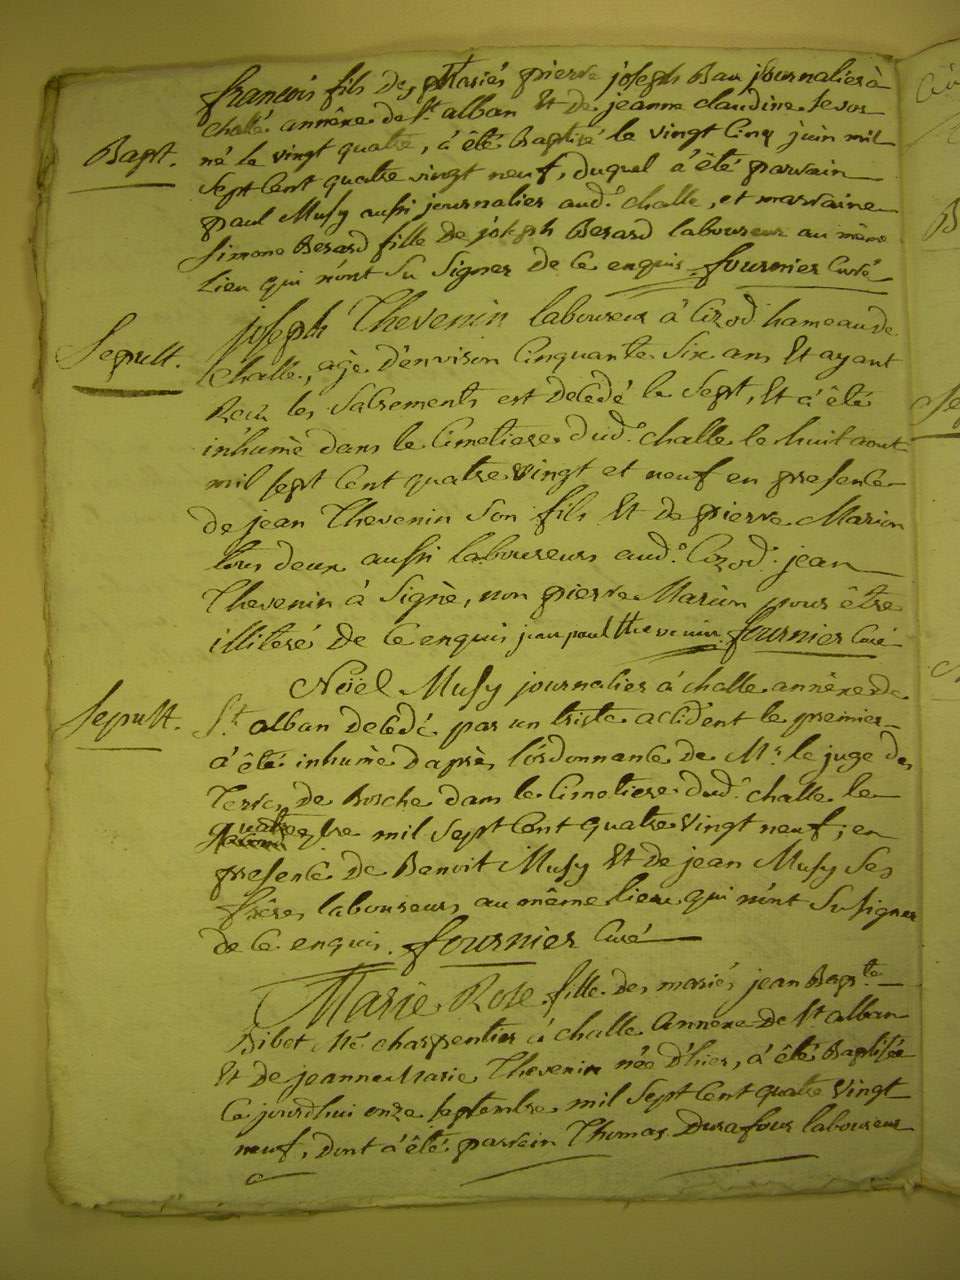 françois fils des mariés pierre joseph Bau journalier à
challe annéxe de St alban Et de jeanne claudine
Bapt.
né le vingt quatre, à été Baptisé le vingt Cinq juin mil
sept Cent quatre vingt neuf, duquel à été parrain
paul Musy aussi journalier aud. challe, et marraine
simone Berard fille de joseph Berard laboureur au même
lieu qui n'ont Su Signer de Ce enquis. fournier Curé
Sepult.
joseph Thevenin laboureur à Cizod hameau de
challe, agé d'environ Cinquante Six ans Et ayant
Recu les Sacrements est décédé le Sept, Et à été
inhumé dans le Cimetiere dud. challe le huit aout
mil sept Cent quatre vingt et neuf en presence
de jean Thevenin Son fils Et de pierre Marion
tous deux aussi laboureurs aud. Cizod. jean
Thevenin à Signé, non pierre Marion pour être
illiteré de Ce enquis jean paul thevenin fournier Curé
Sepult.
Noël Musy journalier à challe annéxe de
St. alban décédé par un triste accident le premier
à été inhumé d'après l'ordonnance de Mr. le juge des
Terres de Bosche dans le Cimetiere dud. challe le
quatre 7bre mil Sept Cent quatre vingt neuf, en
presence de Benoit Musy Et de jean Musy Ses
freres laboureurs au même lieu qui n'ont Su signer
de Ce enquis. fournier Curé
Marie Rose fille des mariés jean Bapte
Ribet Me charpentier à challe Annéxe de St alban
Et de jeanne Marie Thevenin née d'hier, à été Baptisée
Ce jourd'hui onze septembre mil Sept Cent quatre Vingt
neuf, dont à été parrein Thomas Durafour laboureur